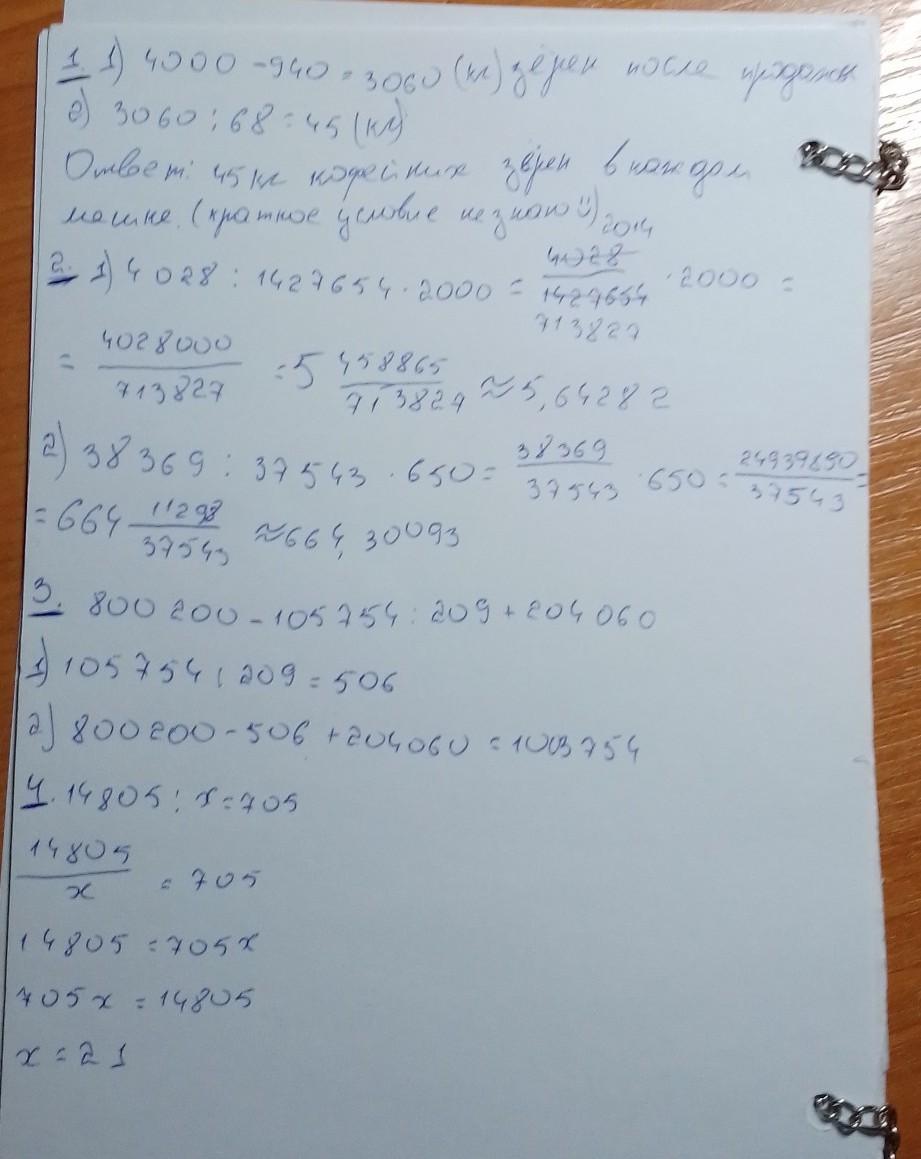 1. 1) 4000 - 940 = 3060 (кг) зёрен после продажи
2) 3060 : 68 = 45 (кг)
Ответ: 45 кг кофейных зёрен в каждом
мешке. (краткое условие не знаю :))
2014
2. 1) 4028 : 1427654 · 2000 = 4028/1427654 · 2000 =
713827
= 4028000/713827 = 5 458865/713827 ≈ 5,64282
2) 38369 : 37543 · 650 = 38369/37543 · 650 = 24939850/37543 =
= 664 11298/37543 ≈ 664,30093
3. 800200 - 105754 : 209 + 204060
1) 105754 : 209 = 506
2) 800200 - 506 + 204060 = 1003754
4. 14805 : x = 705
14805/x = 705
14805 = 705x
705x = 14805
x = 21